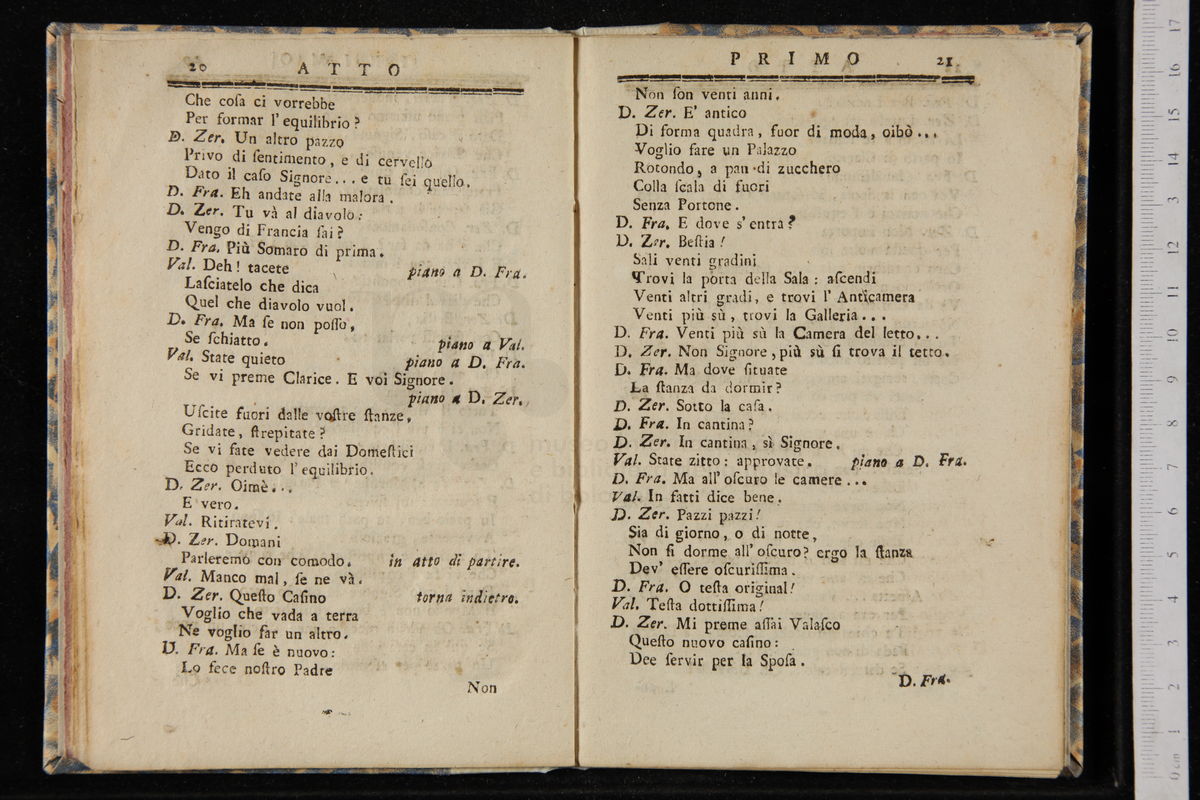 20 ATTO
Che coſa ci vorrebbe
Per formar l' equilibrio?
D. Zer. Un altro pazzo
Privo di ſentimento, e di cervello
Dato il caſo Signore... e tu ſei quello.
D. Fra. Eh andate alla malora.
D. Zer. Tu và al diavolo:
Vengo di Francia ſai?
D. Fra. Più Somaro di prima.
Val. Deh! tacete piano a D. Fra.
Laſciatelo che dica
Quel che diavolo vuol.
D. Fra. Ma ſe non poſſo,
Se ſchiatto. piano a Val.
Val. State quieto piano a D. Fra.
Se vi preme Clarice. E voi Signore.
piano a D. Zer.
Uſcite fuori dalle voſtre ſtanze,
Gridate, ſtrepitate?
Se vi fate vedere dai Domeſtici
Ecco perduto l' equilibrio.
D. Zer. Oimè...
E vero.
Val. Ritiratevi.
D. Zer. Domani
Parleremo con comodo. in atto di partire.
Val. Manco mal, ſe ne và.
D. Zer. Queſto Caſino torna indietro.
Voglio che vada a terra
Ne voglio far un altro.
D. Fra. Ma ſe è nuovo:
Lo fece noſtro Padre
Non
PRIMO 21
Non ſon venti anni.
D. Zer. E' antico
Di forma quadra, fuor di moda, oibò...
Voglio fare un Palazzo
Rotondo, a pan di zucchero
Colla ſcala di fuori
Senza Portone.
D. Fra. E dove s' entra?
D. Zer. Beſtia!
Sali venti gradini
Trovi la porta della Sala: aſcendi
Venti altri gradi, e trovi l' Anticamera
Venti più sù, trovi la Galleria...
D. Fra. Venti più sù la Camera del letto...
D. Zer. Non Signore, più sù ſi trova il tetto.
D. Fra. Ma dove ſituate
La ſtanza da dormir?
D. Zer. Sotto la caſa.
D. Fra. In cantina?
D. Zer. In cantina, sì Signore.
Val. State zitto: approvate. piano a D. Fra.
D. Fra. Ma all' oſcuro le camere...
Val. In fatti dice bene.
D. Zer. Pazzi pazzi!
Sia di giorno, o di notte,
Non ſi dorme all' oſcuro? ergo la ſtanza
Dev' eſſere oſcuriſſima.
D. Fra. O teſta original!
Val. Teſta dottiſſima!
D. Zer. Mi preme aſſai Valaſco
Queſto nuovo caſino:
Dee ſervir per la Spoſa.
D. Fra.